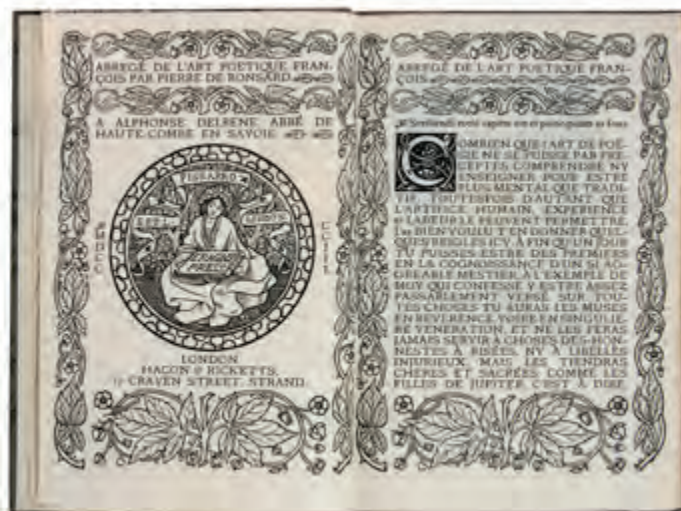 ABREGÉ DE L'ART POETIQUE FRAN-
ÇOIS PAR PIERRE DE RONSARD.
A ALPHONSE DELBENE ABBÉ DE
HAUTE-COMBE EN SAVOIE
PISSARRO
ERAGNY
PRESS
LONDON
HACON & RICKETTS,
CRAVEN STREET, STRAND.
ABREGÉ DE L'ART POETIQUE FRAN-
ÇOIS
Scribendi recte sapere est et principium et fons
COMBIEN QUE L'ART DE POË-
SIE NE SE PUISSE PAR PRE-
CEPTES COMPRENDRE NY
ENSEIGNER, POUR ESTRE
PLUS MENTAL QUE TRADI-
TIF, TOUTESFOIS D'AUTANT QUE
L'ARTIFICE HUMAIN, EXPERIENCE
ET LABEUR LE PEUVENT PERMETTRE,
J'AY BIEN VOULU T'EN DONNER QUEL-
QUES REIGLES ICY, À FIN QU'UN JOUR
TU PUISSES ESTRE DES PREMIERS
EN LA COGNOISSANCE D'UN SI AG-
GREABLE MESTIER, À L'EXEMPLE DE
MOY QUI CONFESSE Y ESTRE ASSEZ
PASSABLEMENT VERSÉ. SUR TOU-
TES CHOSES TU AURAS LES MUSES
EN REVERENCE, VOIRE EN SINGULIE-
RE VENERATION, ET NE LES FERAS
JAMAIS SERVIR À CHOSES DES-HON-
NESTES, À RISÉES, NY À LIBELLES
INJURIEUX, MAIS LES TIENDRAS
CHERES ET SACRÉES, COMME LES
FILLES DE JUPITER, C'EST À DIRE